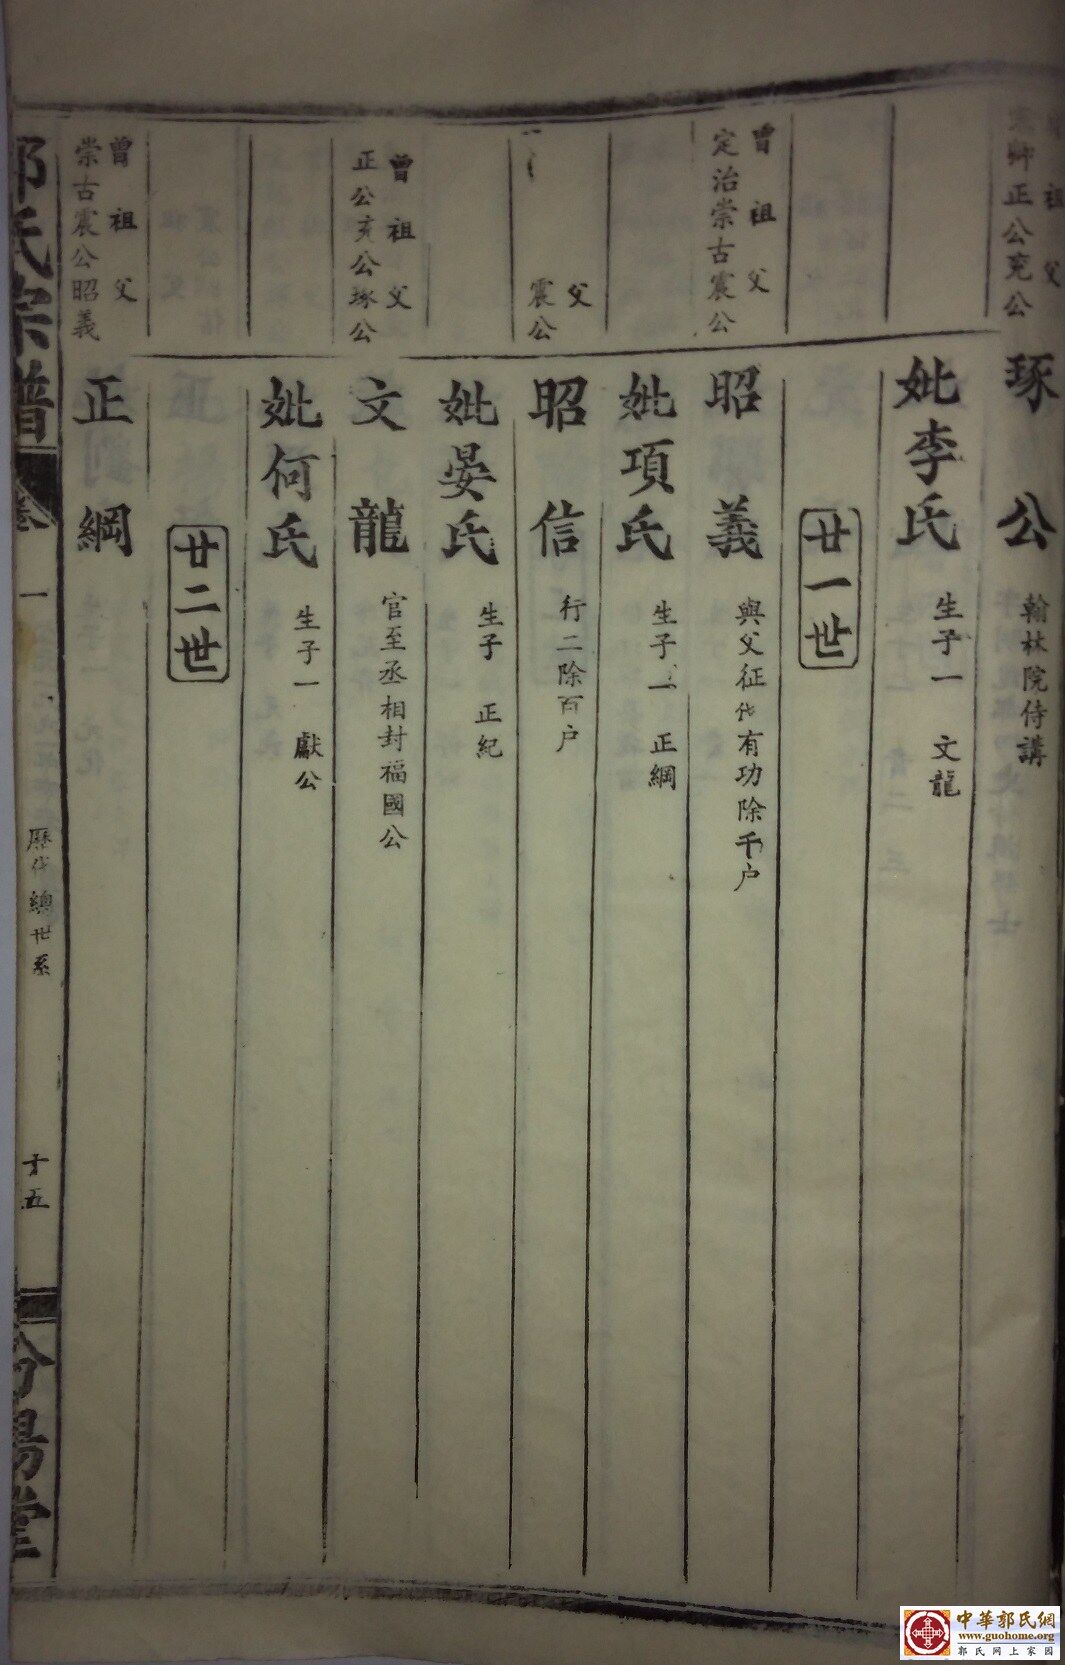 曾祖父
定治崇古震公
父
震公
曾祖父
正公亥公琢公
曾祖父
崇古震公昭義
琢公 翰林院侍講
妣李氏 生子一 文龍
廿一世
昭義 與父征伐有功除千户
妣項氏 生子一 正綱
昭信 行二除百户
妣晏氏 生子 正紀
文龍 官至丞相封福國公
妣何氏 生子一 獻公
廿二世
正綱
郭氏宗譜
卷一
歷代總世系
十五
汾陽堂
中華郭氏網
www.guohome.org
郭氏网上家园